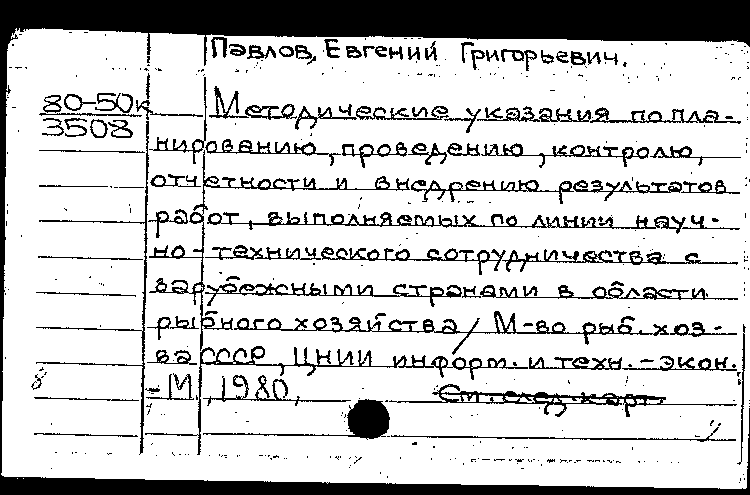 Павлов, Евгений Григорьевич.
80-50к
3508
Методические указания по пла-
нированию, проведению, контролю,
отчетности и внедрению результатов
работ, выполняемых по линии науч-
но-технического сотрудничества с
зарубежными странами в области
рыбного хозяйства / М-во рыб. хоз-
ва СССР, ЦНИИ информ. и техн.-экон.
-М, 1980,
См. след. карт.